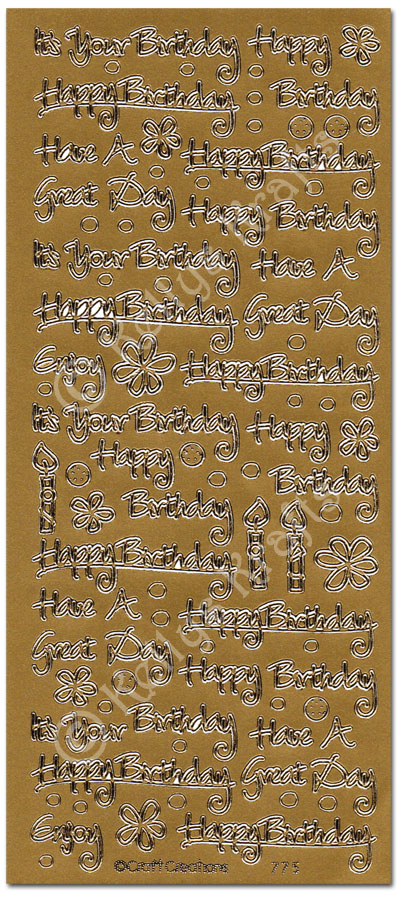 It's Your Birthday Happy
Happy Birthday Birthday
Have A Happy Birthday
Great Day Happy Birthday
It's Your Birthday Have A
Happy Birthday Great Day
Enjoy Happy Birthday
It's Your Birthday Happy
Happy Birthday
Birthday
Happy Birthday
Have A Happy Birthday
Great Day Happy Birthday
It's Your Birthday Have A
Happy Birthday Great Day
Enjoy Happy Birthday
©Craft Creations 775
© Kelly's Krafts
© Kelly's Krafts